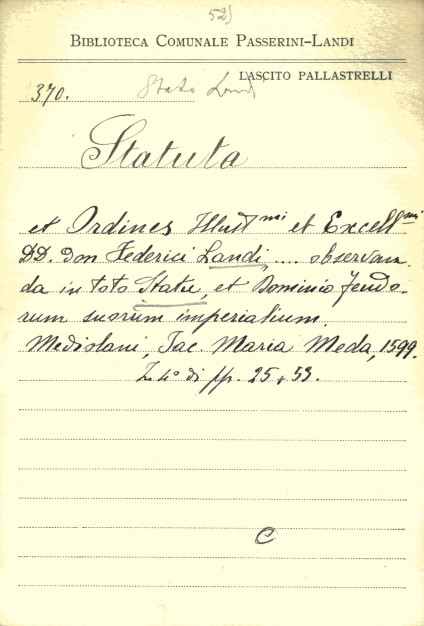 52)
BIBLIOTECA COMUNALE PASSERINI-LANDI
LASCITO PALLASTRELLI
370. Stato Landi
Statuta
et Ordines Illust mi et Excell mi
DD. Don Federici Landi, .... observan
da in toto Statu, et Dominio feudo-
rum suorum imperialium.
Mediolani, Jac. Maria Meda, 1599.
In 4° di pp. 25 + 53.
C